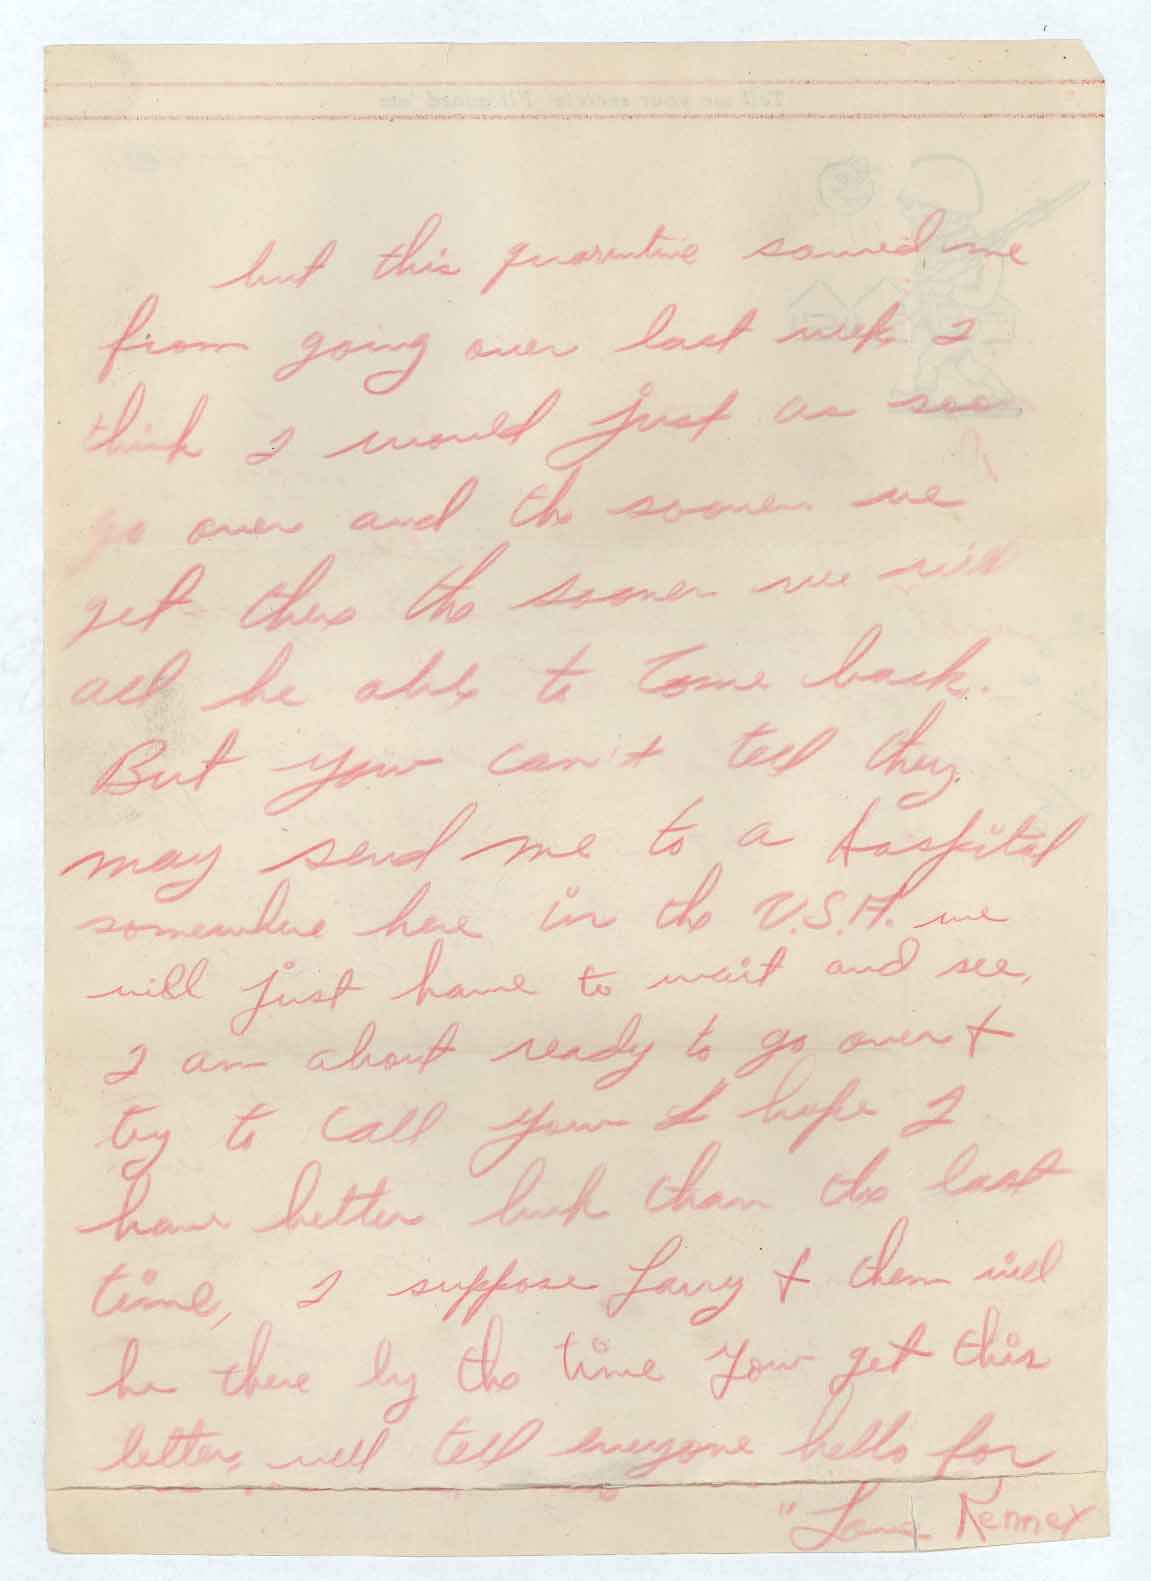 but this quarintine saved me
from going over last week I
think I would just as soo
go over and the sooner we
get there the sooner we will
all be able to come back.
But you can't tell they
may send me to a hospital
somewhere here in the U.S.A. we
will just have to wait and see.
I am about ready to go over +
try to call you I hope I
have better luck than the last
time, I suppose Larry + them will
be there by the time you get this
letter, well tell everyone hello for
"Love Kenney